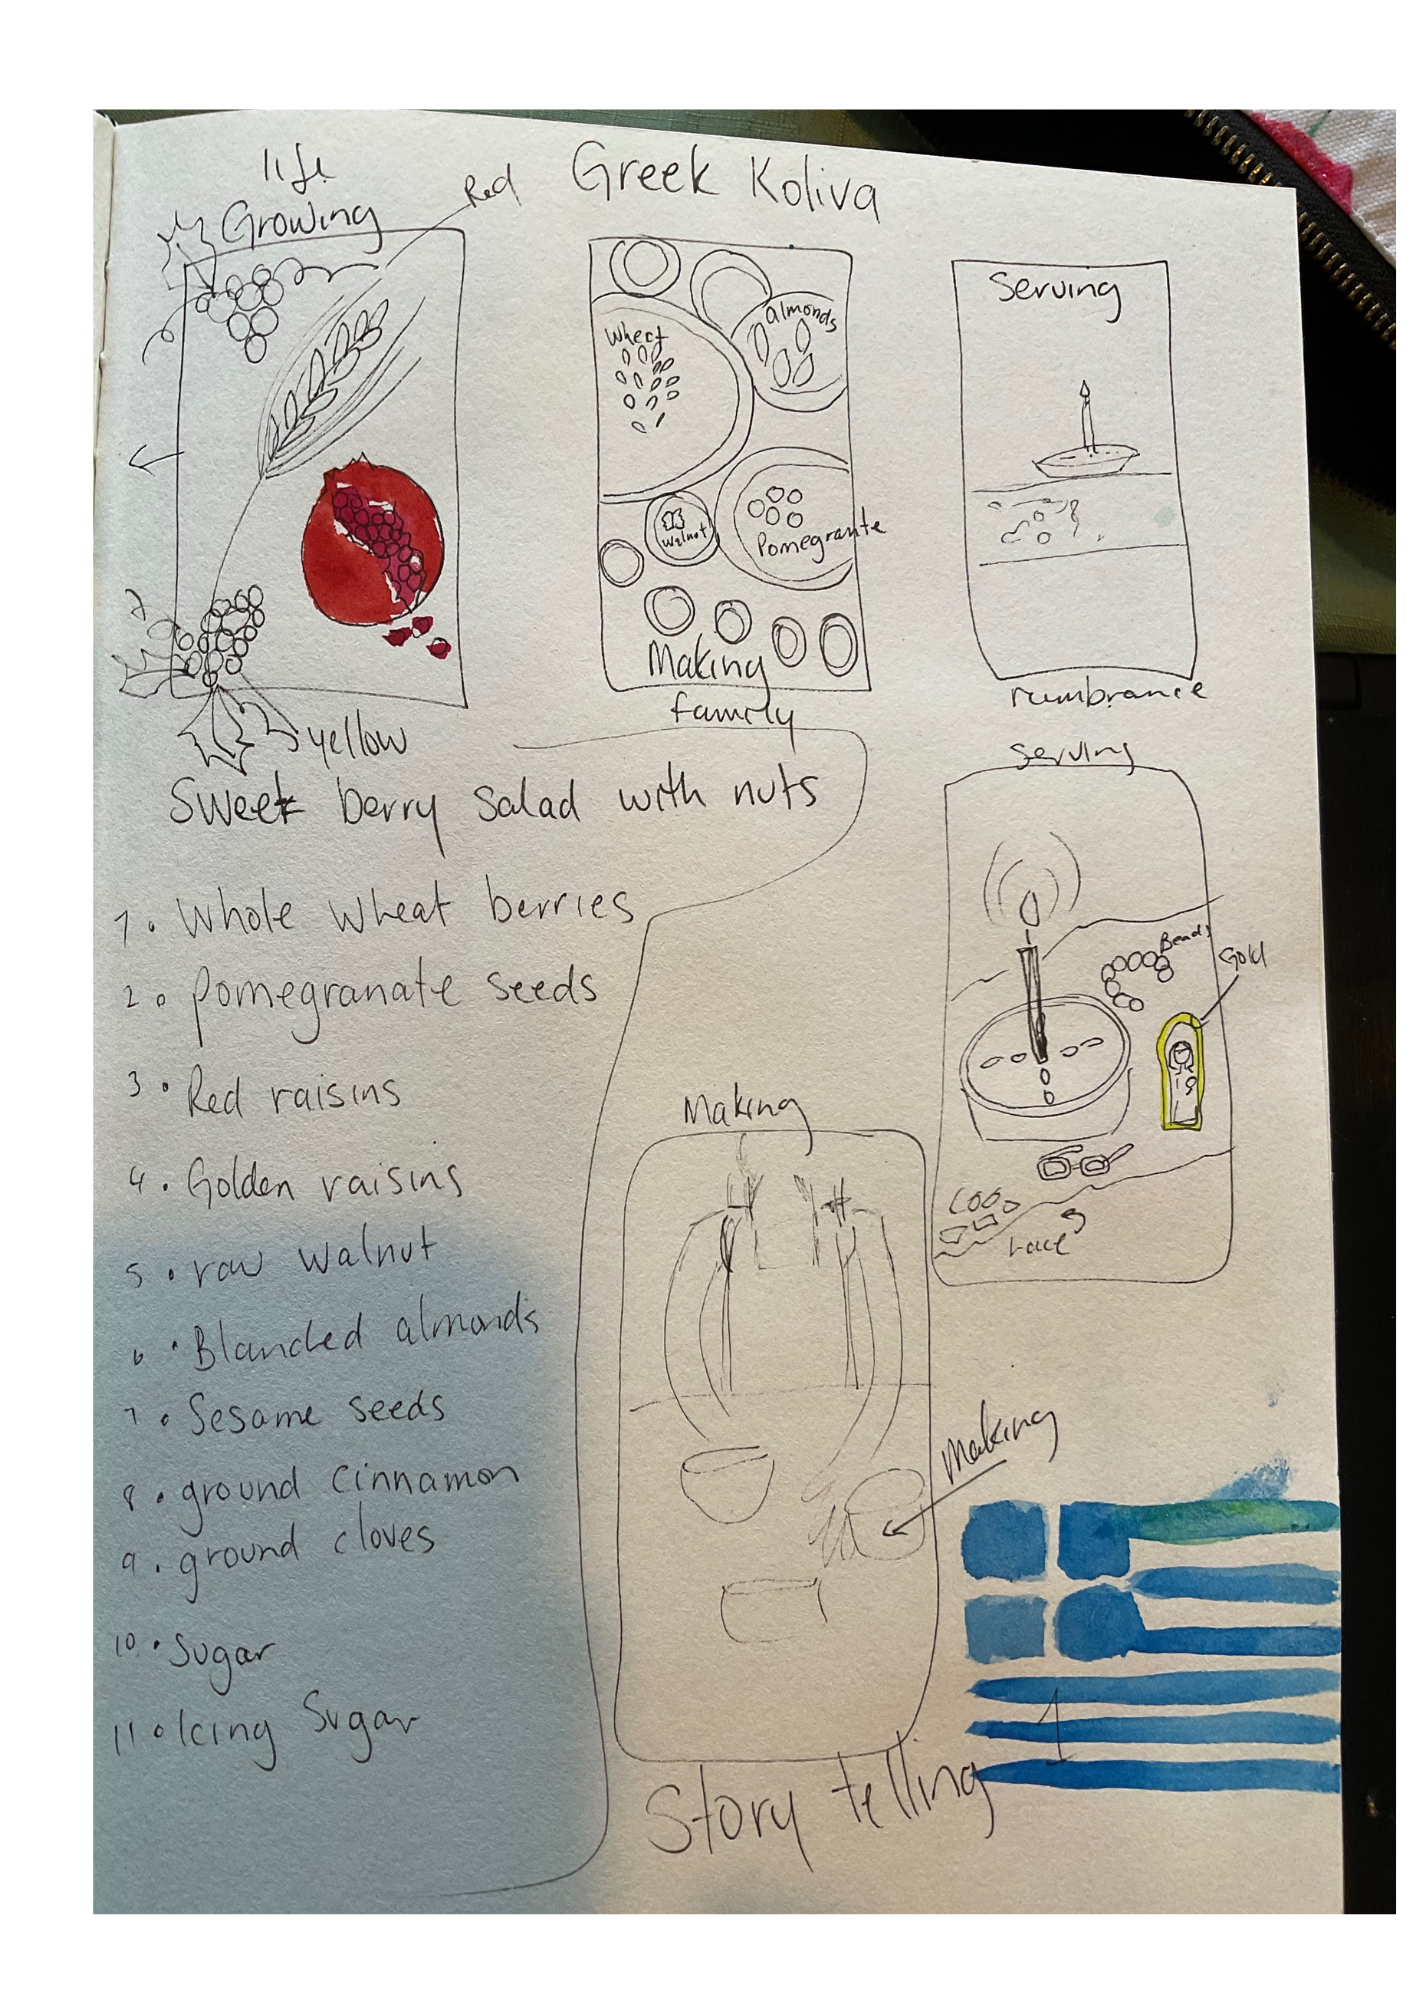 life
Growing
Red
Greek Koliva
Wheat
almonds
Walnut
Pomegrante
Making
family
Serving
rumbrance
yellow
Sweet berry salad with nuts
1. Whole wheat berries
2. pomegranate seeds
3. Red raisins
4. Golden raisins
5. raw walnut
6. Blanched almonds
7. Sesame seeds
8. ground cinnamon
9. ground cloves
10. Sugar
11. Icing Sugar
serving
Beads
Gold
Making
Making
Story telling
1